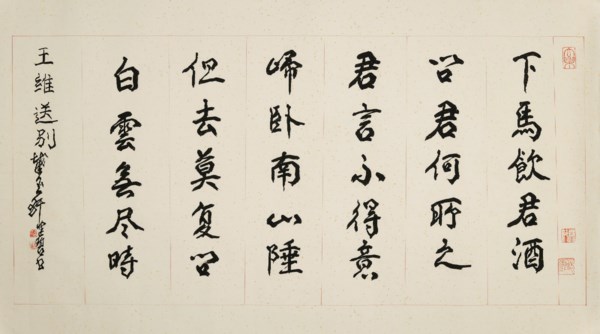 下馬飲君酒
问君何所之
君言不得意
歸卧南山陲
但去莫复问
白雲無尽時
王維送别